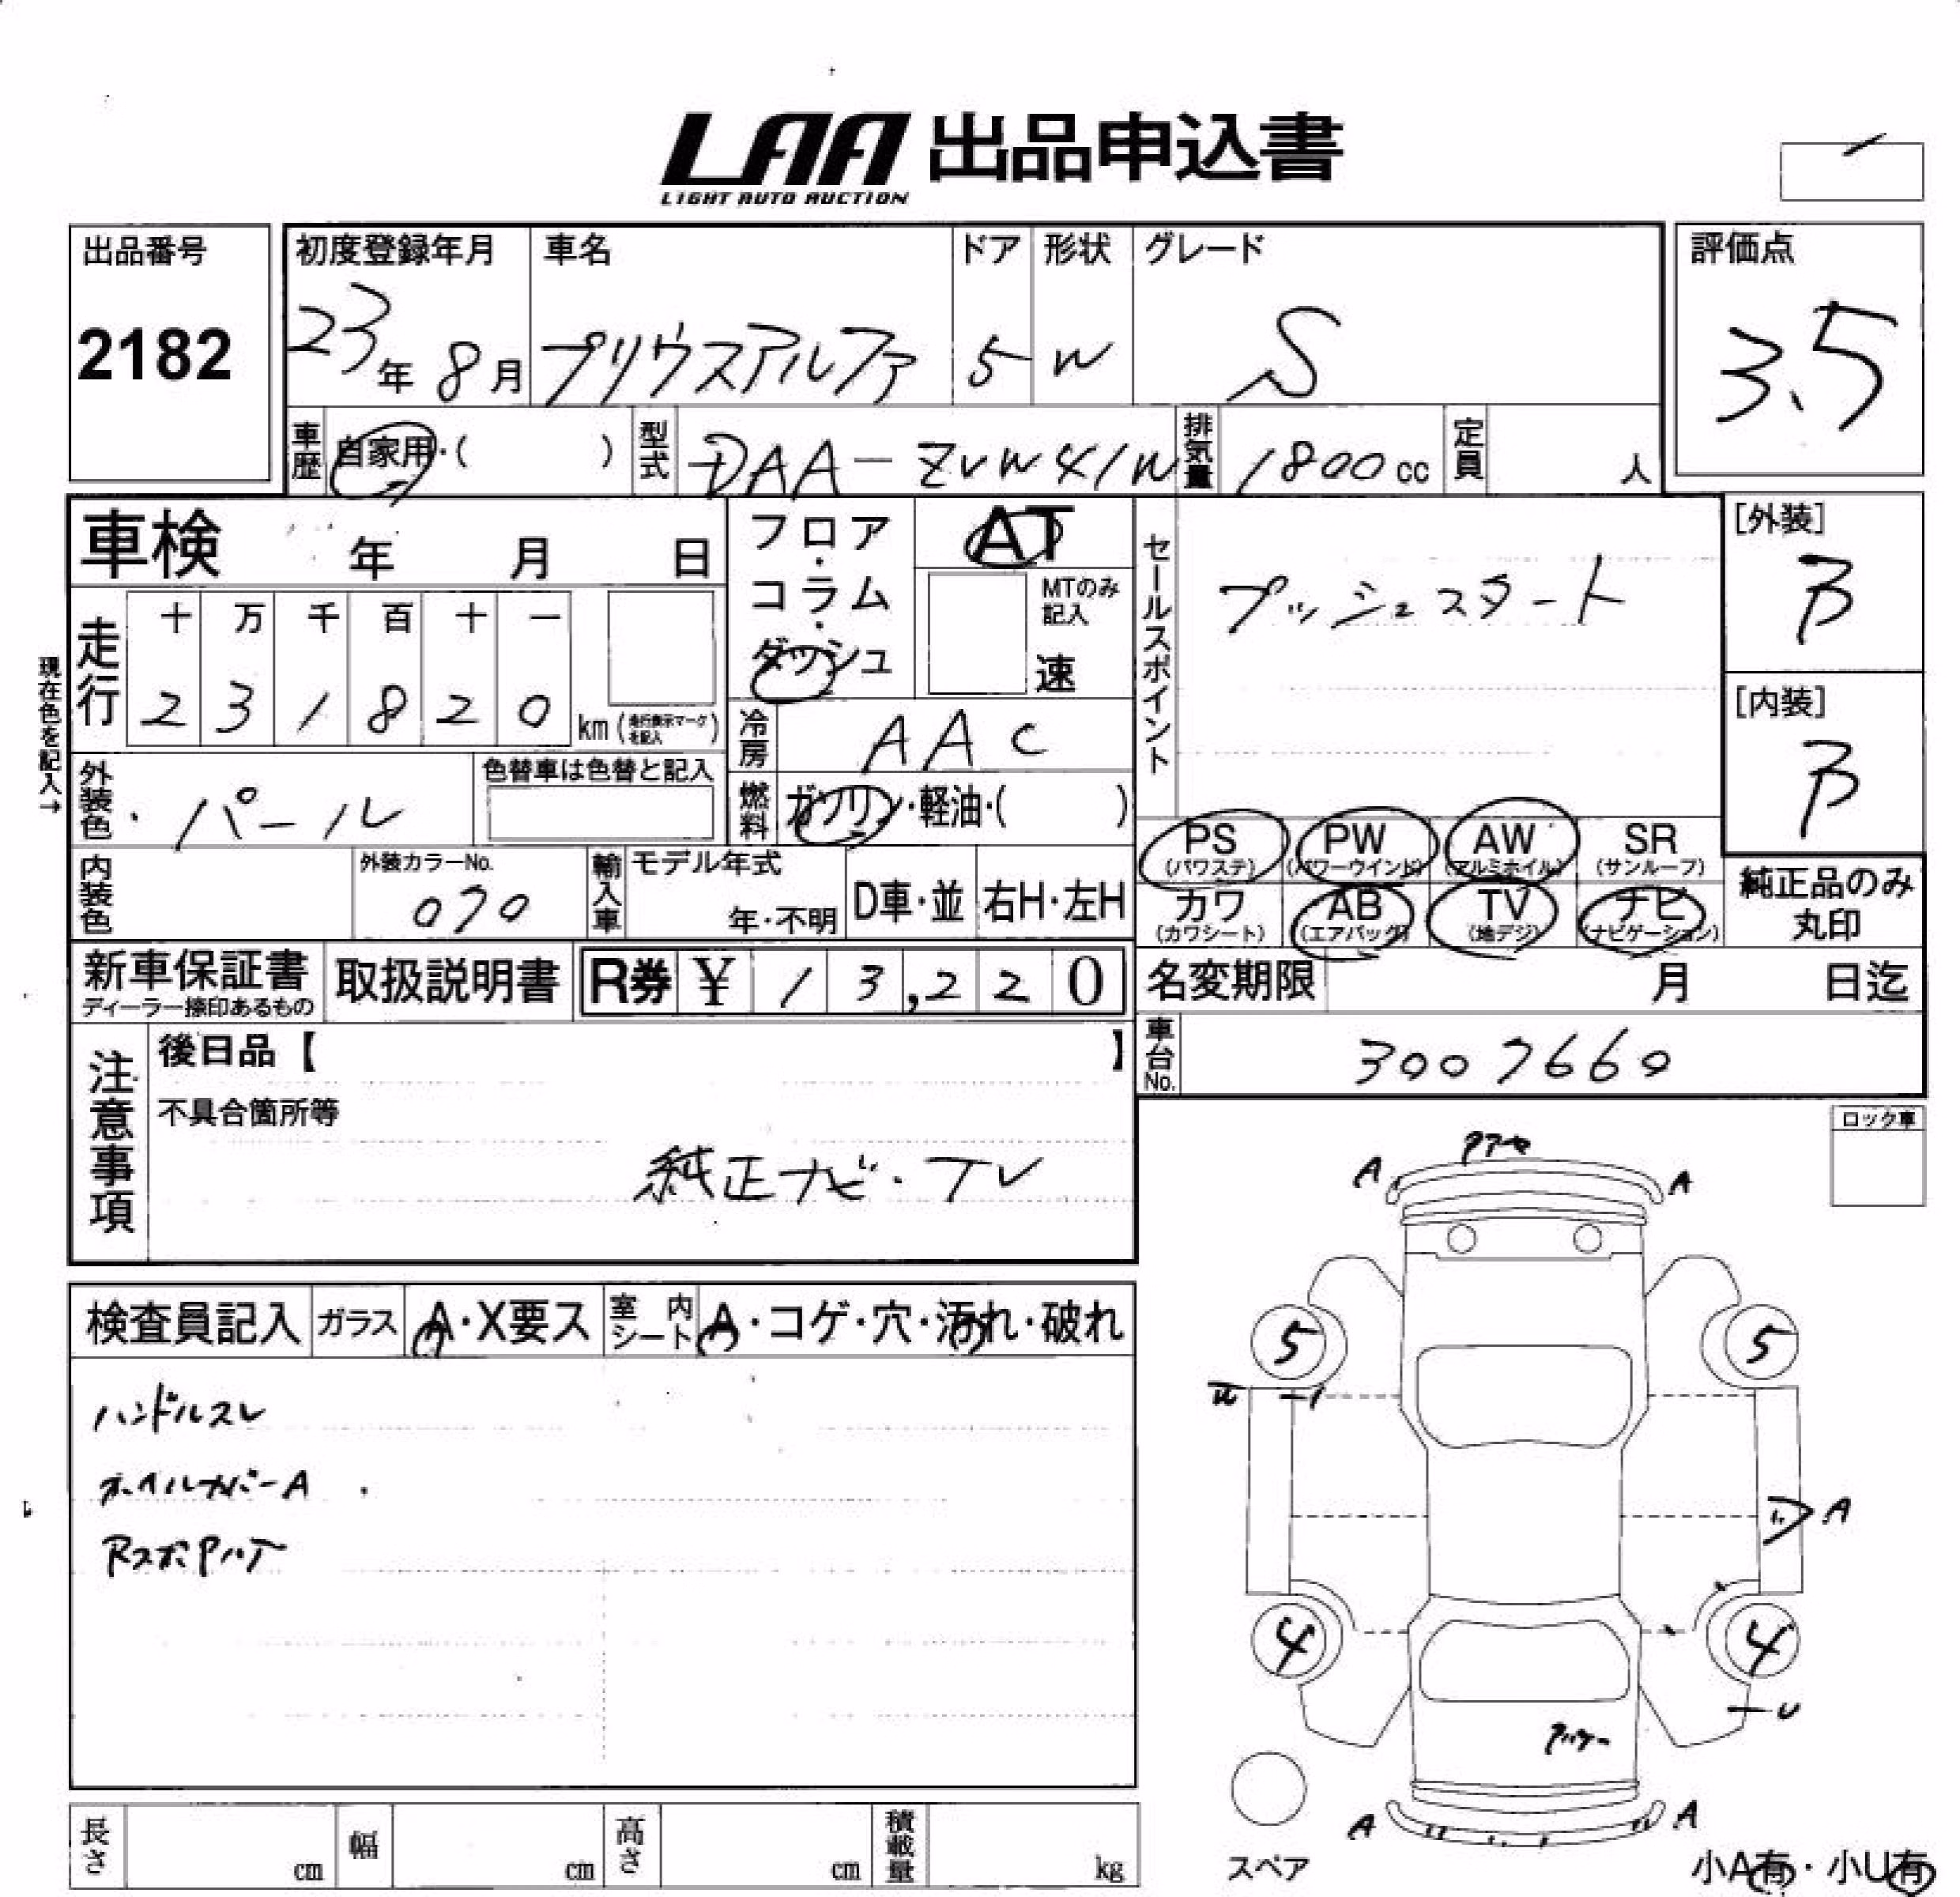 LAA 出品申込書
LIGHT AUTO AUCTION
出品番号
2182
初度登録年月
23年 8月
車名
プリウスアルファ
ドア
5
形状
W
グレード
S
評価点
3.5
車歴
自家用・( )
型式
DAA-ZVW41W
排気量
1800cc
定員
人
車検 年 月 日
フロア・コラム・ダッシュ
AT
MTのみ記入
速
セールスポイント
プッシュスタート
[外装]
B
[内装]
B
現在色を記入→
走行
十 万 千 百 十 一
2 3 1 8 2 0 km (走行表示マークを記入)
冷房
AAC
外装色
・パール
色替車は色替と記入
燃料
ガソリン・軽油・( )
PS (パワステ)
PW (パワーウインド)
AW (アルミホイル)
SR (サンルーフ)
カワ (カワシート)
AB (エアバッグ)
TV (地デジ)
ナビ (ナビゲーション)
純正品のみ丸印
内装色
外装カラーNo.
070
輸入車
モデル年式
年・不明
D車・並
右H・左H
新車保証書
ディーラー捺印あるもの
取扱説明書
R券 ¥ 13,220
名変期限 月 日迄
注意事項
後日品【 】
不具合箇所等
純正ナビ・TV
車台No.
3007660
ロック車
検査員記入
ガラス
A・X要ス
室内シート
A・コゲ・穴・汚れ・破れ
ハンドルスレ
ホイルカバーA
A A
5 5
A
4 4
U
A A
スペア
小A有・小U有
長さ cm
幅 cm
高さ cm
積載量 kg